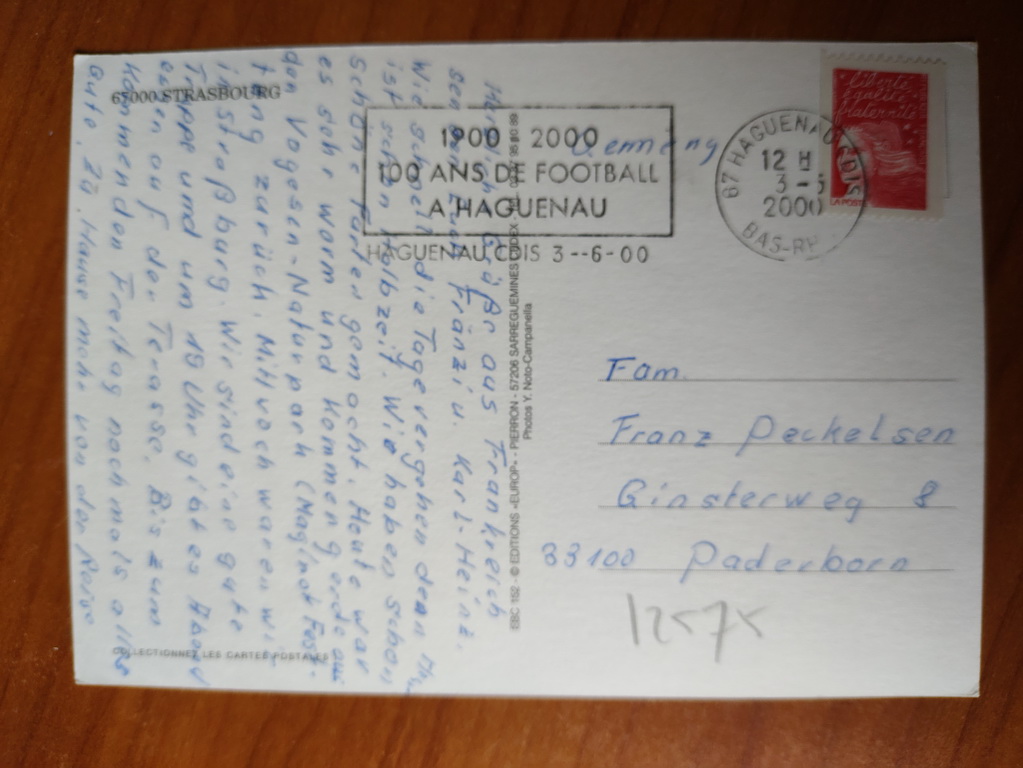 67000 STRASBOURG
Herzliche Grüße aus Frankreich
senden Euch Franzi u. Karl-Heinz.
Wie schnell die Tage vergehen denn
ist schon Halbzeit. Wir haben schon
Schöne Fahrten gemacht. Heute war
es sehr warm und kommen gerade aus
den Vogesen-Naturpark (Maginot Fest-
tung zurück. Mittwoch waren wir
in Straßburg. Wir sind eine gute
Truppe und um 19 Uhr gibt es Abend
essen auf der Terasse. Bis zum
Kommenden Freitag nochmals alles
Gute. Zu Hause mehr von der Reise
COLLECTIONNEZ LES CARTES POSTALES
EBC 152 - © EDITIONS «EUROP» - PIERRON - 57206 SARREGUEMINES CEDEX
Photos Y. Noto-Campanella
1900 2000
100 ANS DE FOOTBALL
A HAGUENAU
HAGUENAU CDIS 3--6-00
67 HAGUENAU CDIS
12 H
3-6
2000
BAS-RH
Liberté
égalité
fraternité
LA POSTE
Fam.
Franz Peckelsen
Ginsterweg 8
33100 Paderborn
12575